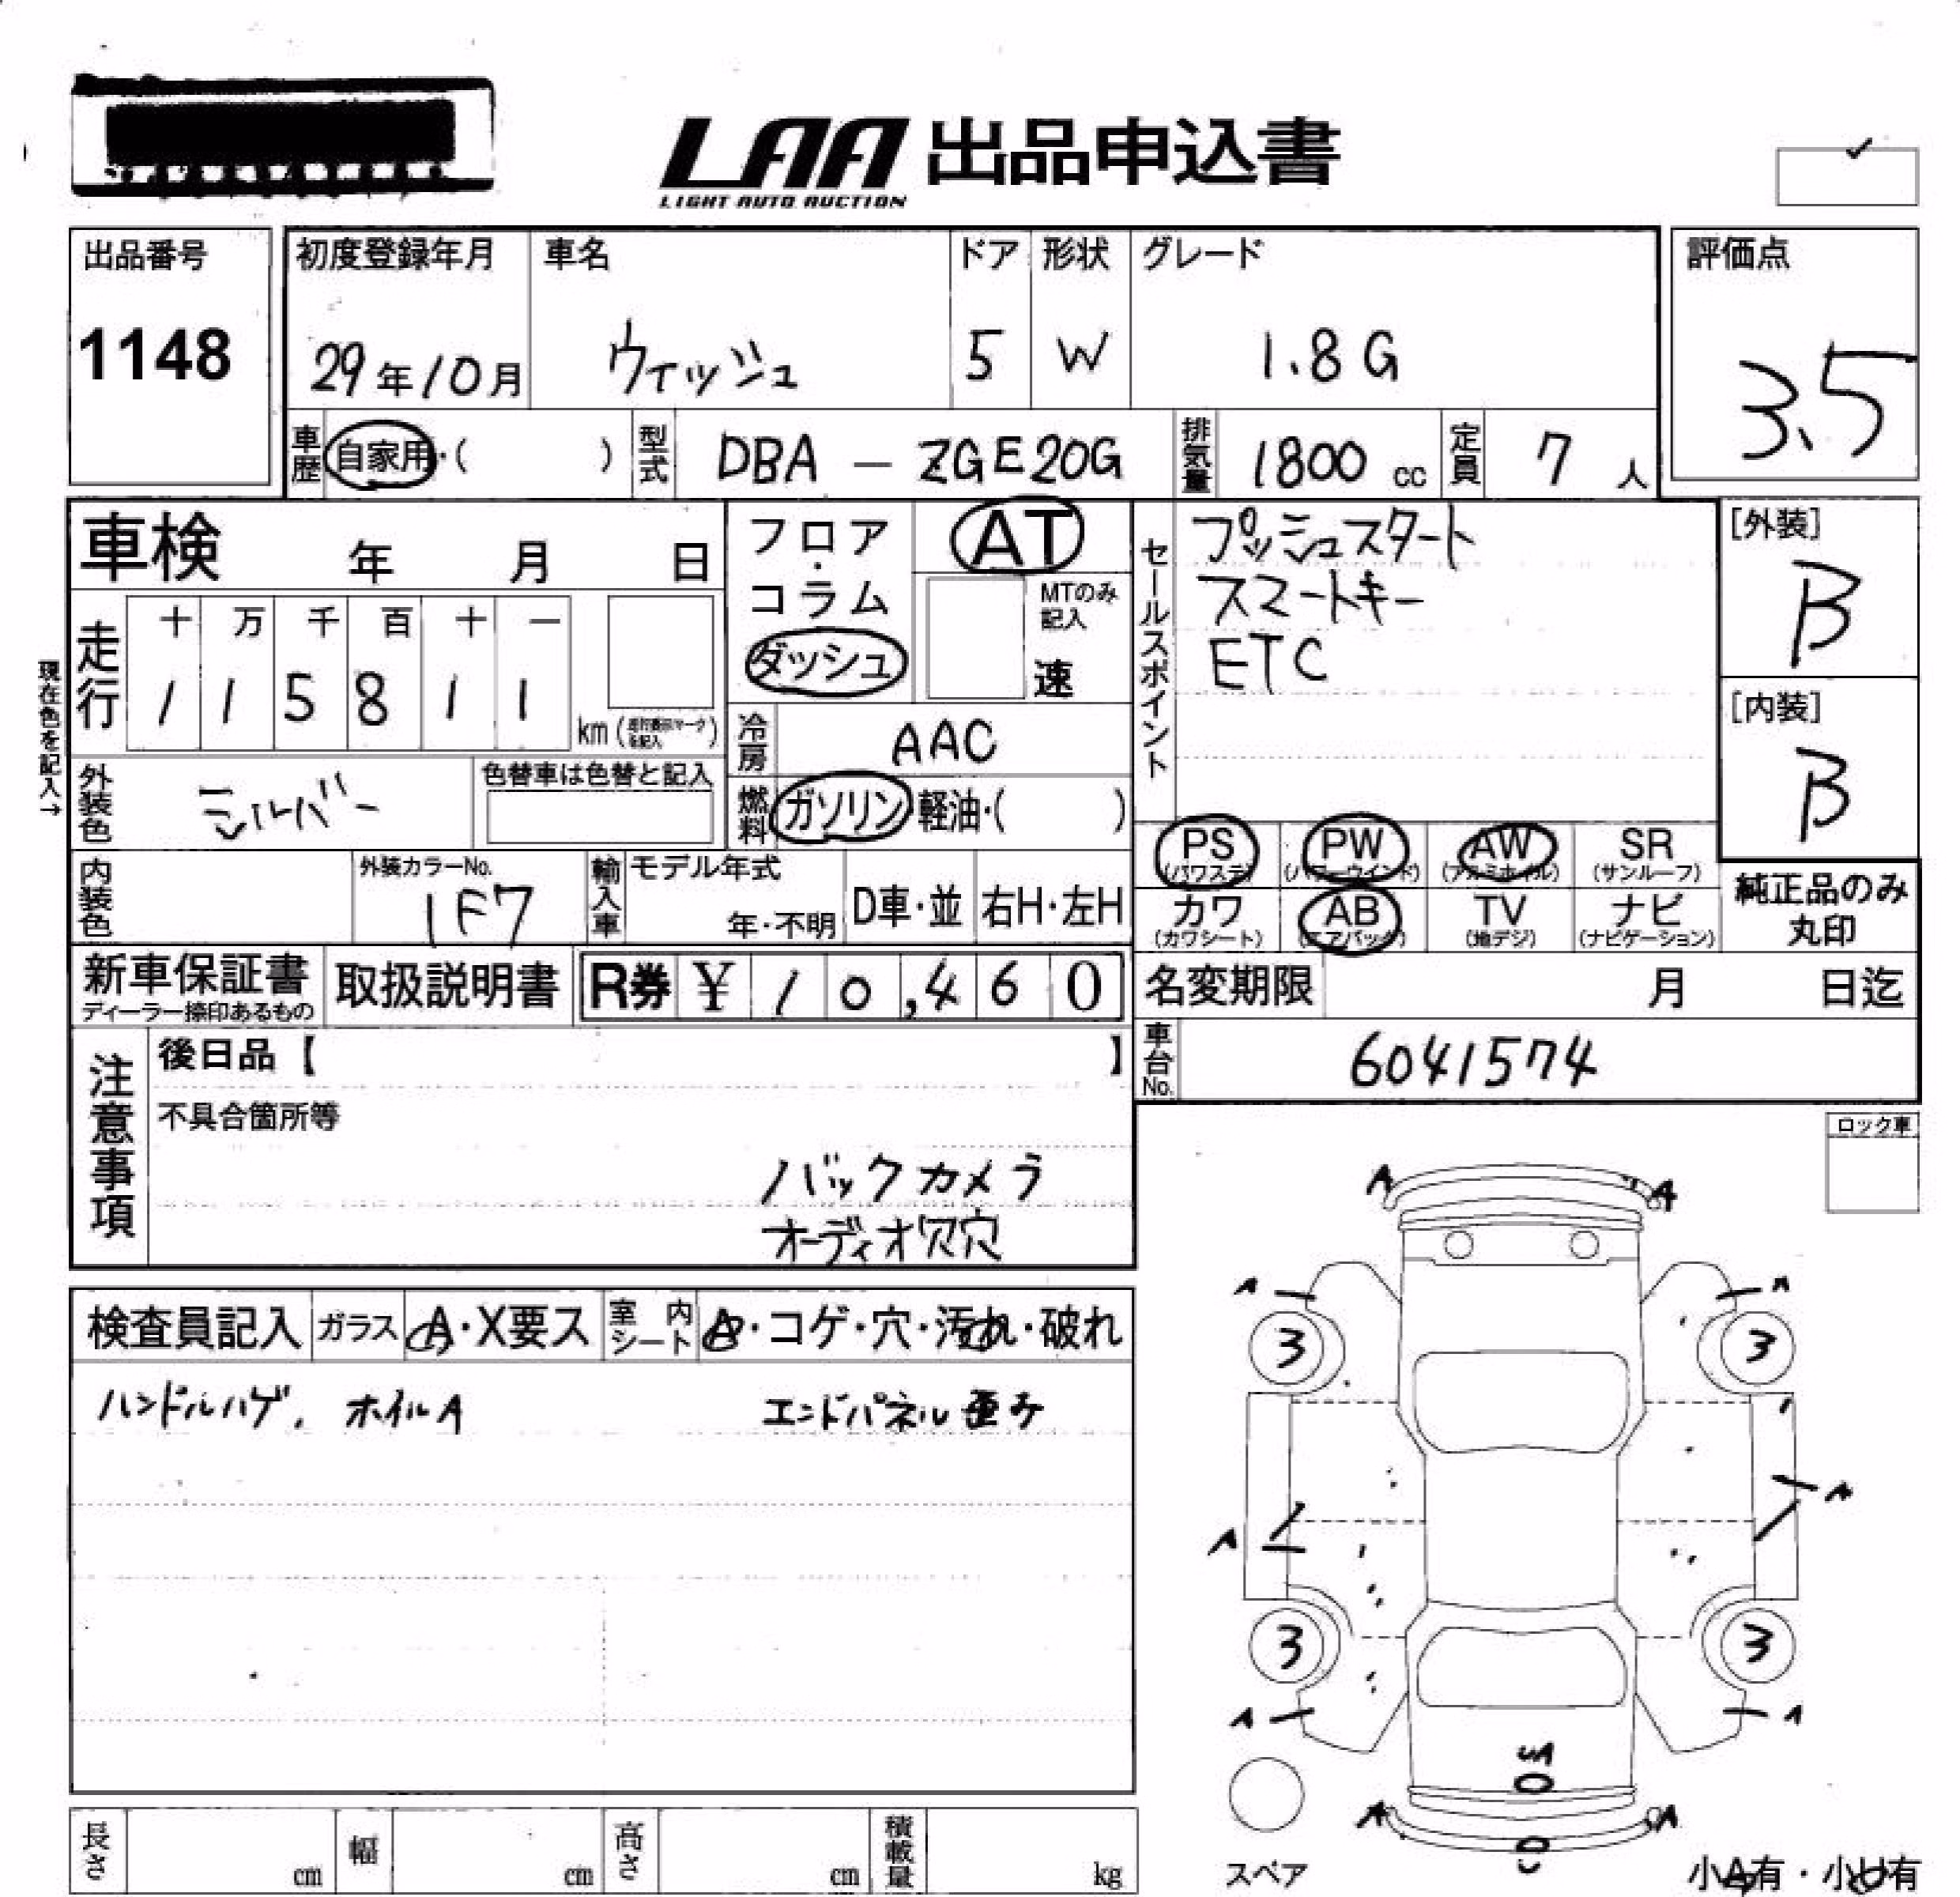 LAA 出品申込書
LIGHT AUTO AUCTION
出品番号
1148
初度登録年月
29年10月
車名
ウィッシュ
ドア
5
形状
W
グレード
1.8G
評価点
3.5
車歴
自家用・( )
型式
DBA - ZGE20G
排気量
1800 cc
定員
7 人
車検 年 月 日
現在色を記入→
走行
十 万 千 百 十 一
1 1 5 8 1 1
km
外装色
シルバー
色替車は色替と記入
内装色
外装カラーNo.
1F7
輸入車
モデル年式
年・不明
D車・並
右H・左H
フロア・
コラム
ダッシュ
AT
MTのみ
記入
速
冷房
AAC
燃料
ガソリン・軽油・( )
セールスポイント
プッシュスタート
スマートキー
ETC
[外装]
B
[内装]
B
PS
(パワステ)
PW
(パワーウインド)
AW
(アルミホイル)
SR
(サンルーフ)
カワ
(カワシート)
AB
(エアバック)
TV
(地デジ)
ナビ
(ナビゲーション)
純正品のみ
丸印
新車保証書
ディーラー捺印あるもの
取扱説明書
R券 ¥ 10,460
名変期限 月 日迄
車台No.
6041574
注意事項
後日品【 】
不具合箇所等
バックカメラ
オーディオ穴穴
ロック車
検査員記入
ガラス
A・X要ス
室内シート
A・コゲ・穴・汚れ・破れ
ハンドルハゲ, ホイルA
エンドパネル歪み
A A
A A
3 3
A
A
3 3
A A
A A
スペア
小A有・小U有
長さ cm
幅 cm
高さ cm
積載量 kg